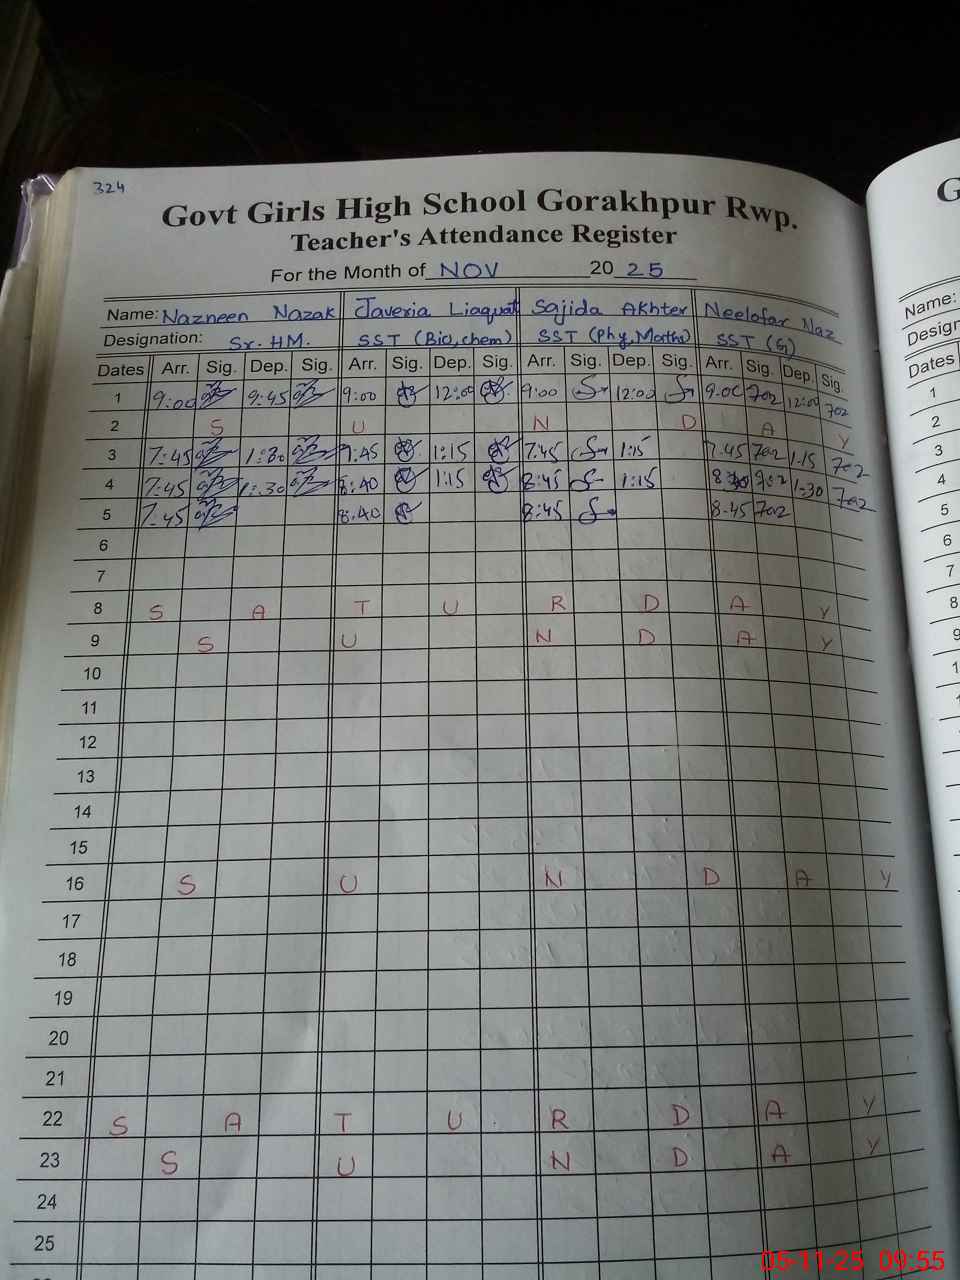 324
Govt Girls High School Gorakhpur Rwp.
Teacher's Attendance Register
For the Month of NOV 20 25
Name: Nazneen Nazak Javeria Liaquat Sajida Akhter Neelofar Naz
Designation: Sr. HM. SST (Bio, chem) SST (Phy, Maths) SST (G)
Dates Arr. Sig. Dep. Sig. Arr. Sig. Dep. Sig. Arr. Sig. Dep. Sig. Arr. Sig. Dep. Sig.
1 9:00 9:45 9:00 12:00 9:00 12:00 9.00 12:00
2 S U N D A Y
3 7:45 1:30 7:45 1:15 7:45 1:15 7.45 1.15
4 7:45 1:30 8:40 1:15 8:45 1:15 1.30
5 7:45 8:40 8:45 8.45
6
7
8 S A T U R D A Y
9 S U N D A Y
10
11
12
13
14
15
16 S U N D A Y
17
18
19
20
21
22 S A T U R D A Y
23 S U N D A Y
24
25
G
Name:
Design
Dates
1
2
3
4
5
6
7
8
9
05-11-25 09:55